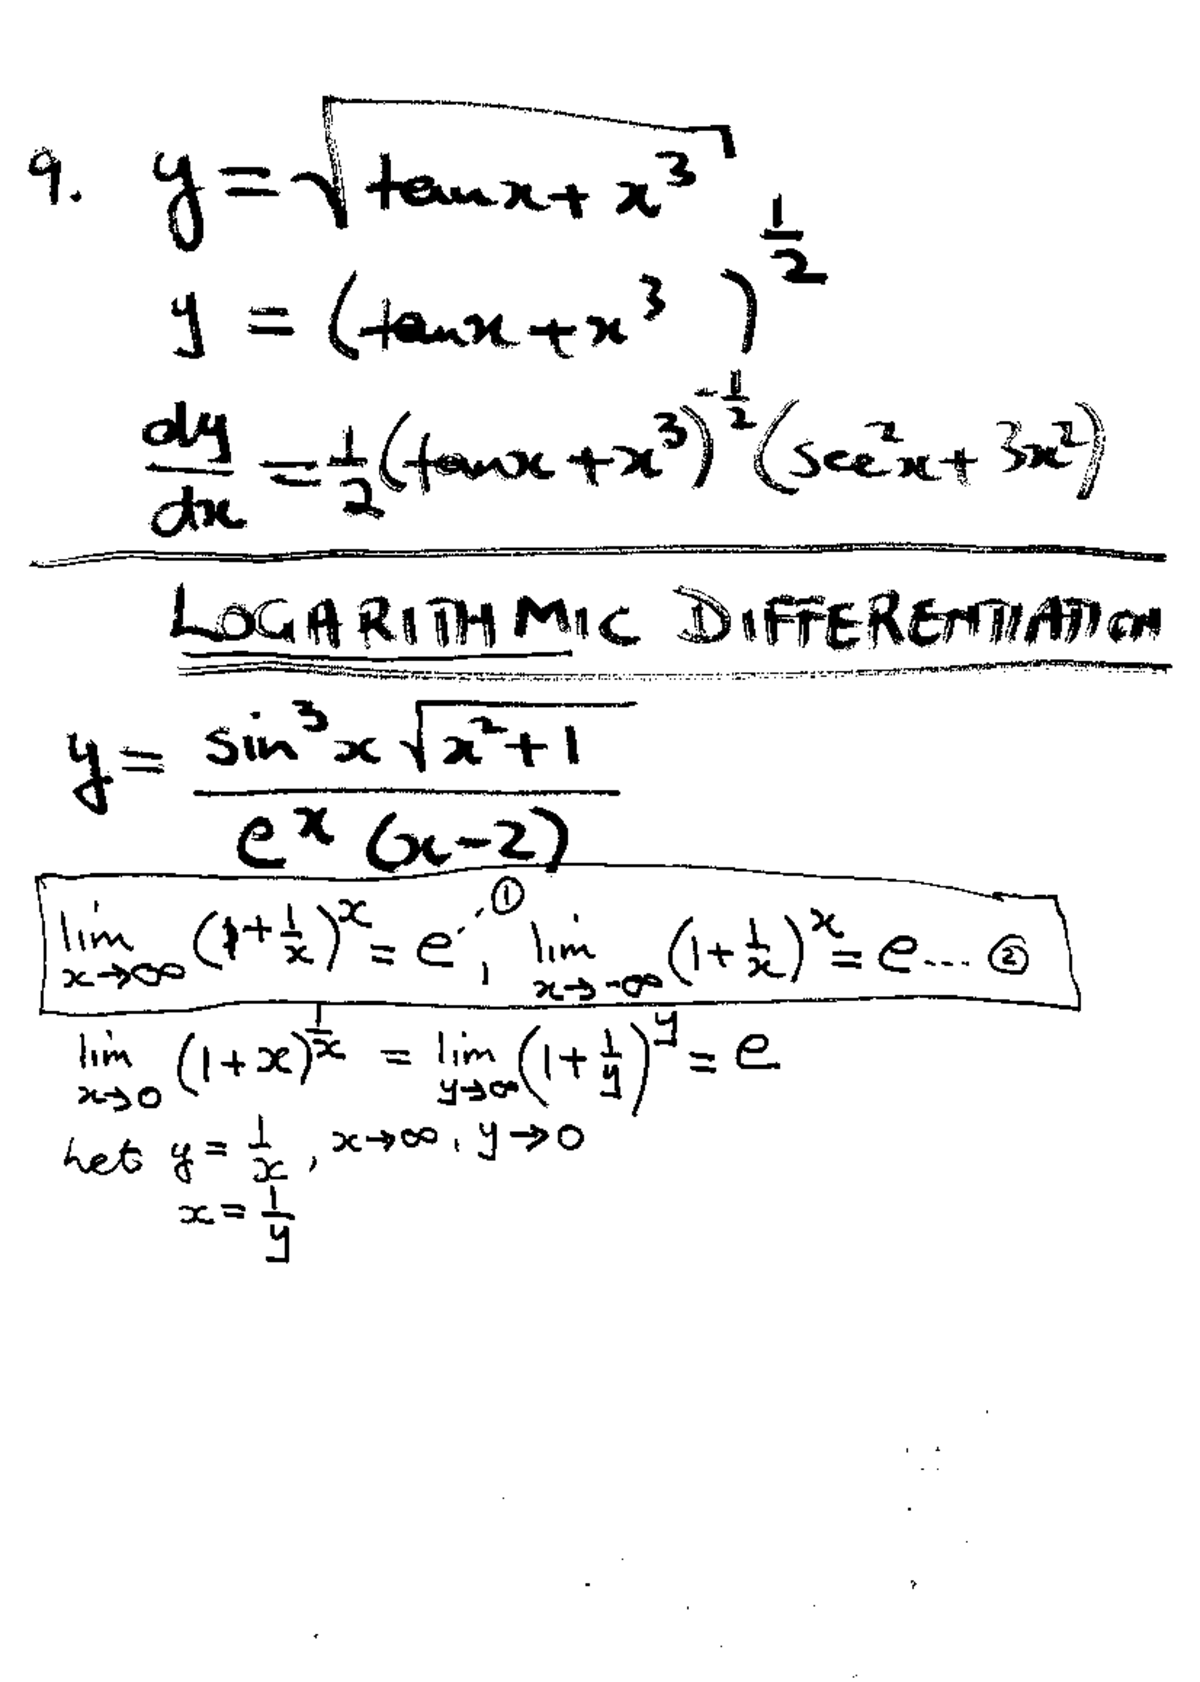 9. y = √(tanx + x³)
y = (tanx + x³)^(1/2)
dy/dx = 1/2 (tanx + x³)^(-1/2) (sec²x + 3x²)
LOGARITHMIC DIFFERENTIATION
y = (sin³x √(x²+1)) / (e^x (x-2))
lim x→∞ (1 + 1/x)^x = e ...①, lim x→-∞ (1 + 1/x)^x = e .... ②
lim x→0 (1 + x)^(1/x) = lim y→∞ (1 + 1/y)^y = e
Let y = 1/x, x→∞, y→0
x = 1/y